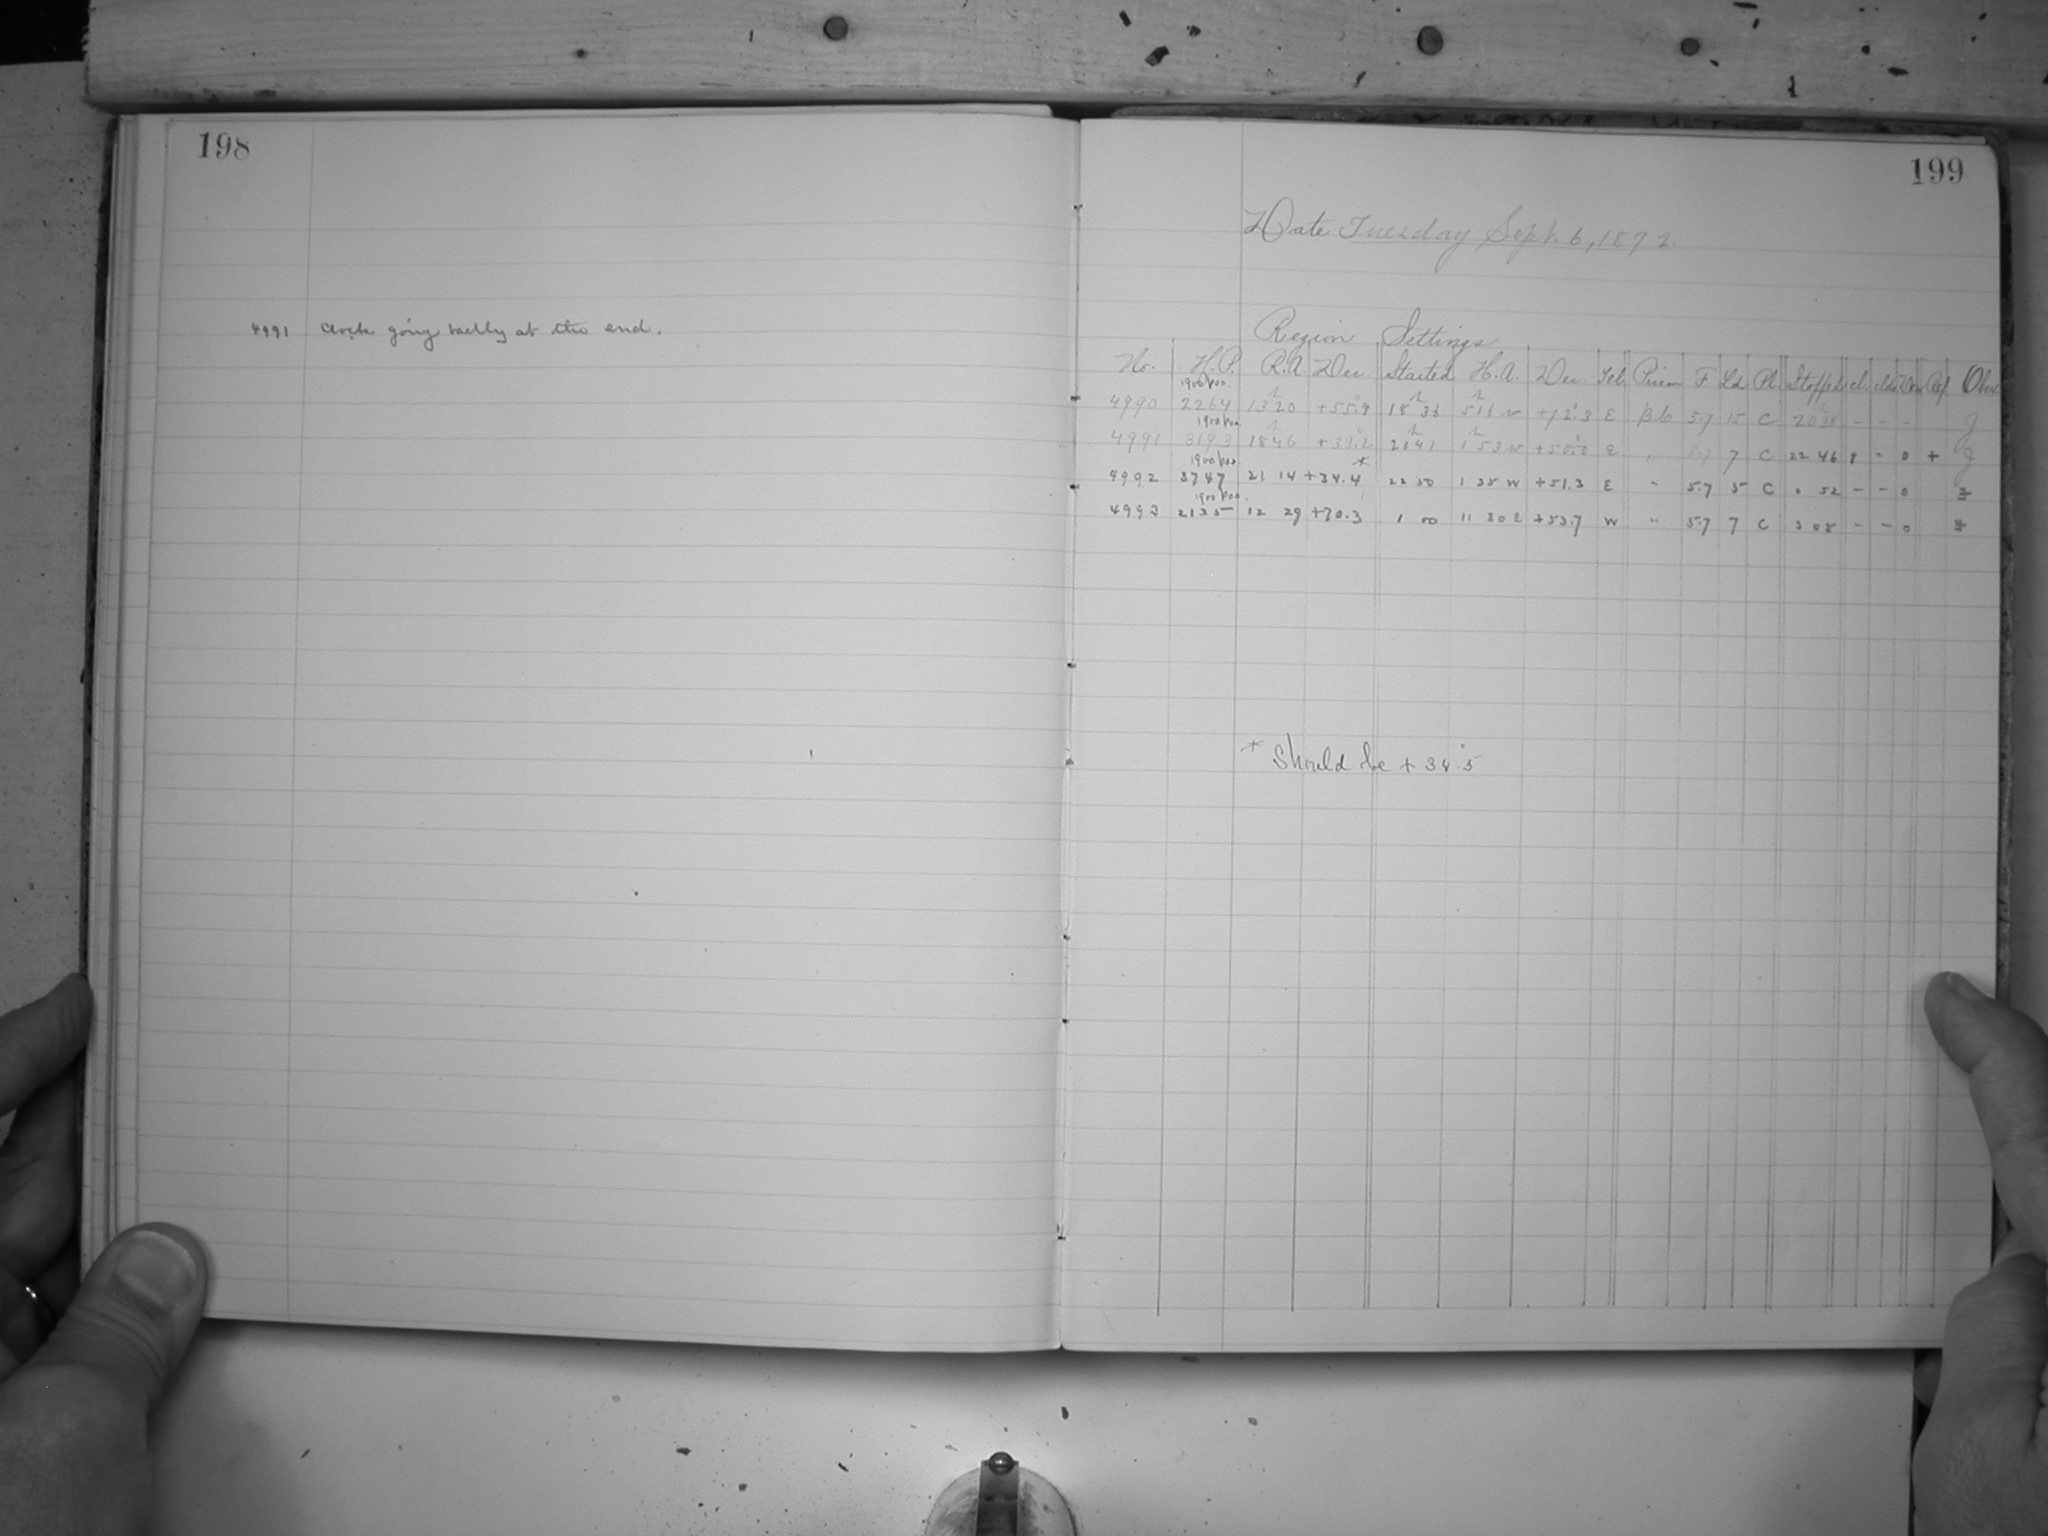 198
4991 Clock going badly at the end.
199
Date Tuesday Sept. 6, 1892.
Region Settings
No. H.P. R.A. Dec. Started H.A. Dec. Tel. Prism F Ld Pl. Stopped cl. Ref. Obs.
1900 pos.
4990 2264 13 20 +55.9 18 36 5 16 w +72.3 E B6 57 15 C 20 38 - - - J
1900 pos.
4991 3193 18 46 +33.2 21 41 1 53 w +50.0 E " 57 7 C 22 46 - 0 + J
1900 pos. *
4992 3747 21 14 +34.4 22 50 1 35 W +51.3 E " 57 5 C 0 52 - - 0
1900 pos.
4993 2135 12 29 +70.3 1 00 11 30 E +53.7 W " 57 7 C 3 08 - - 0
* Should be + 34°.5